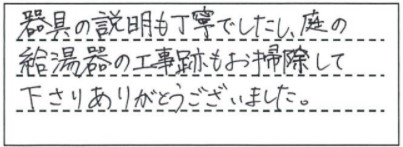 器具の説明も丁寧でしたし、庭の
給湯器の工事跡もお掃除して
下さりありがとうございました。